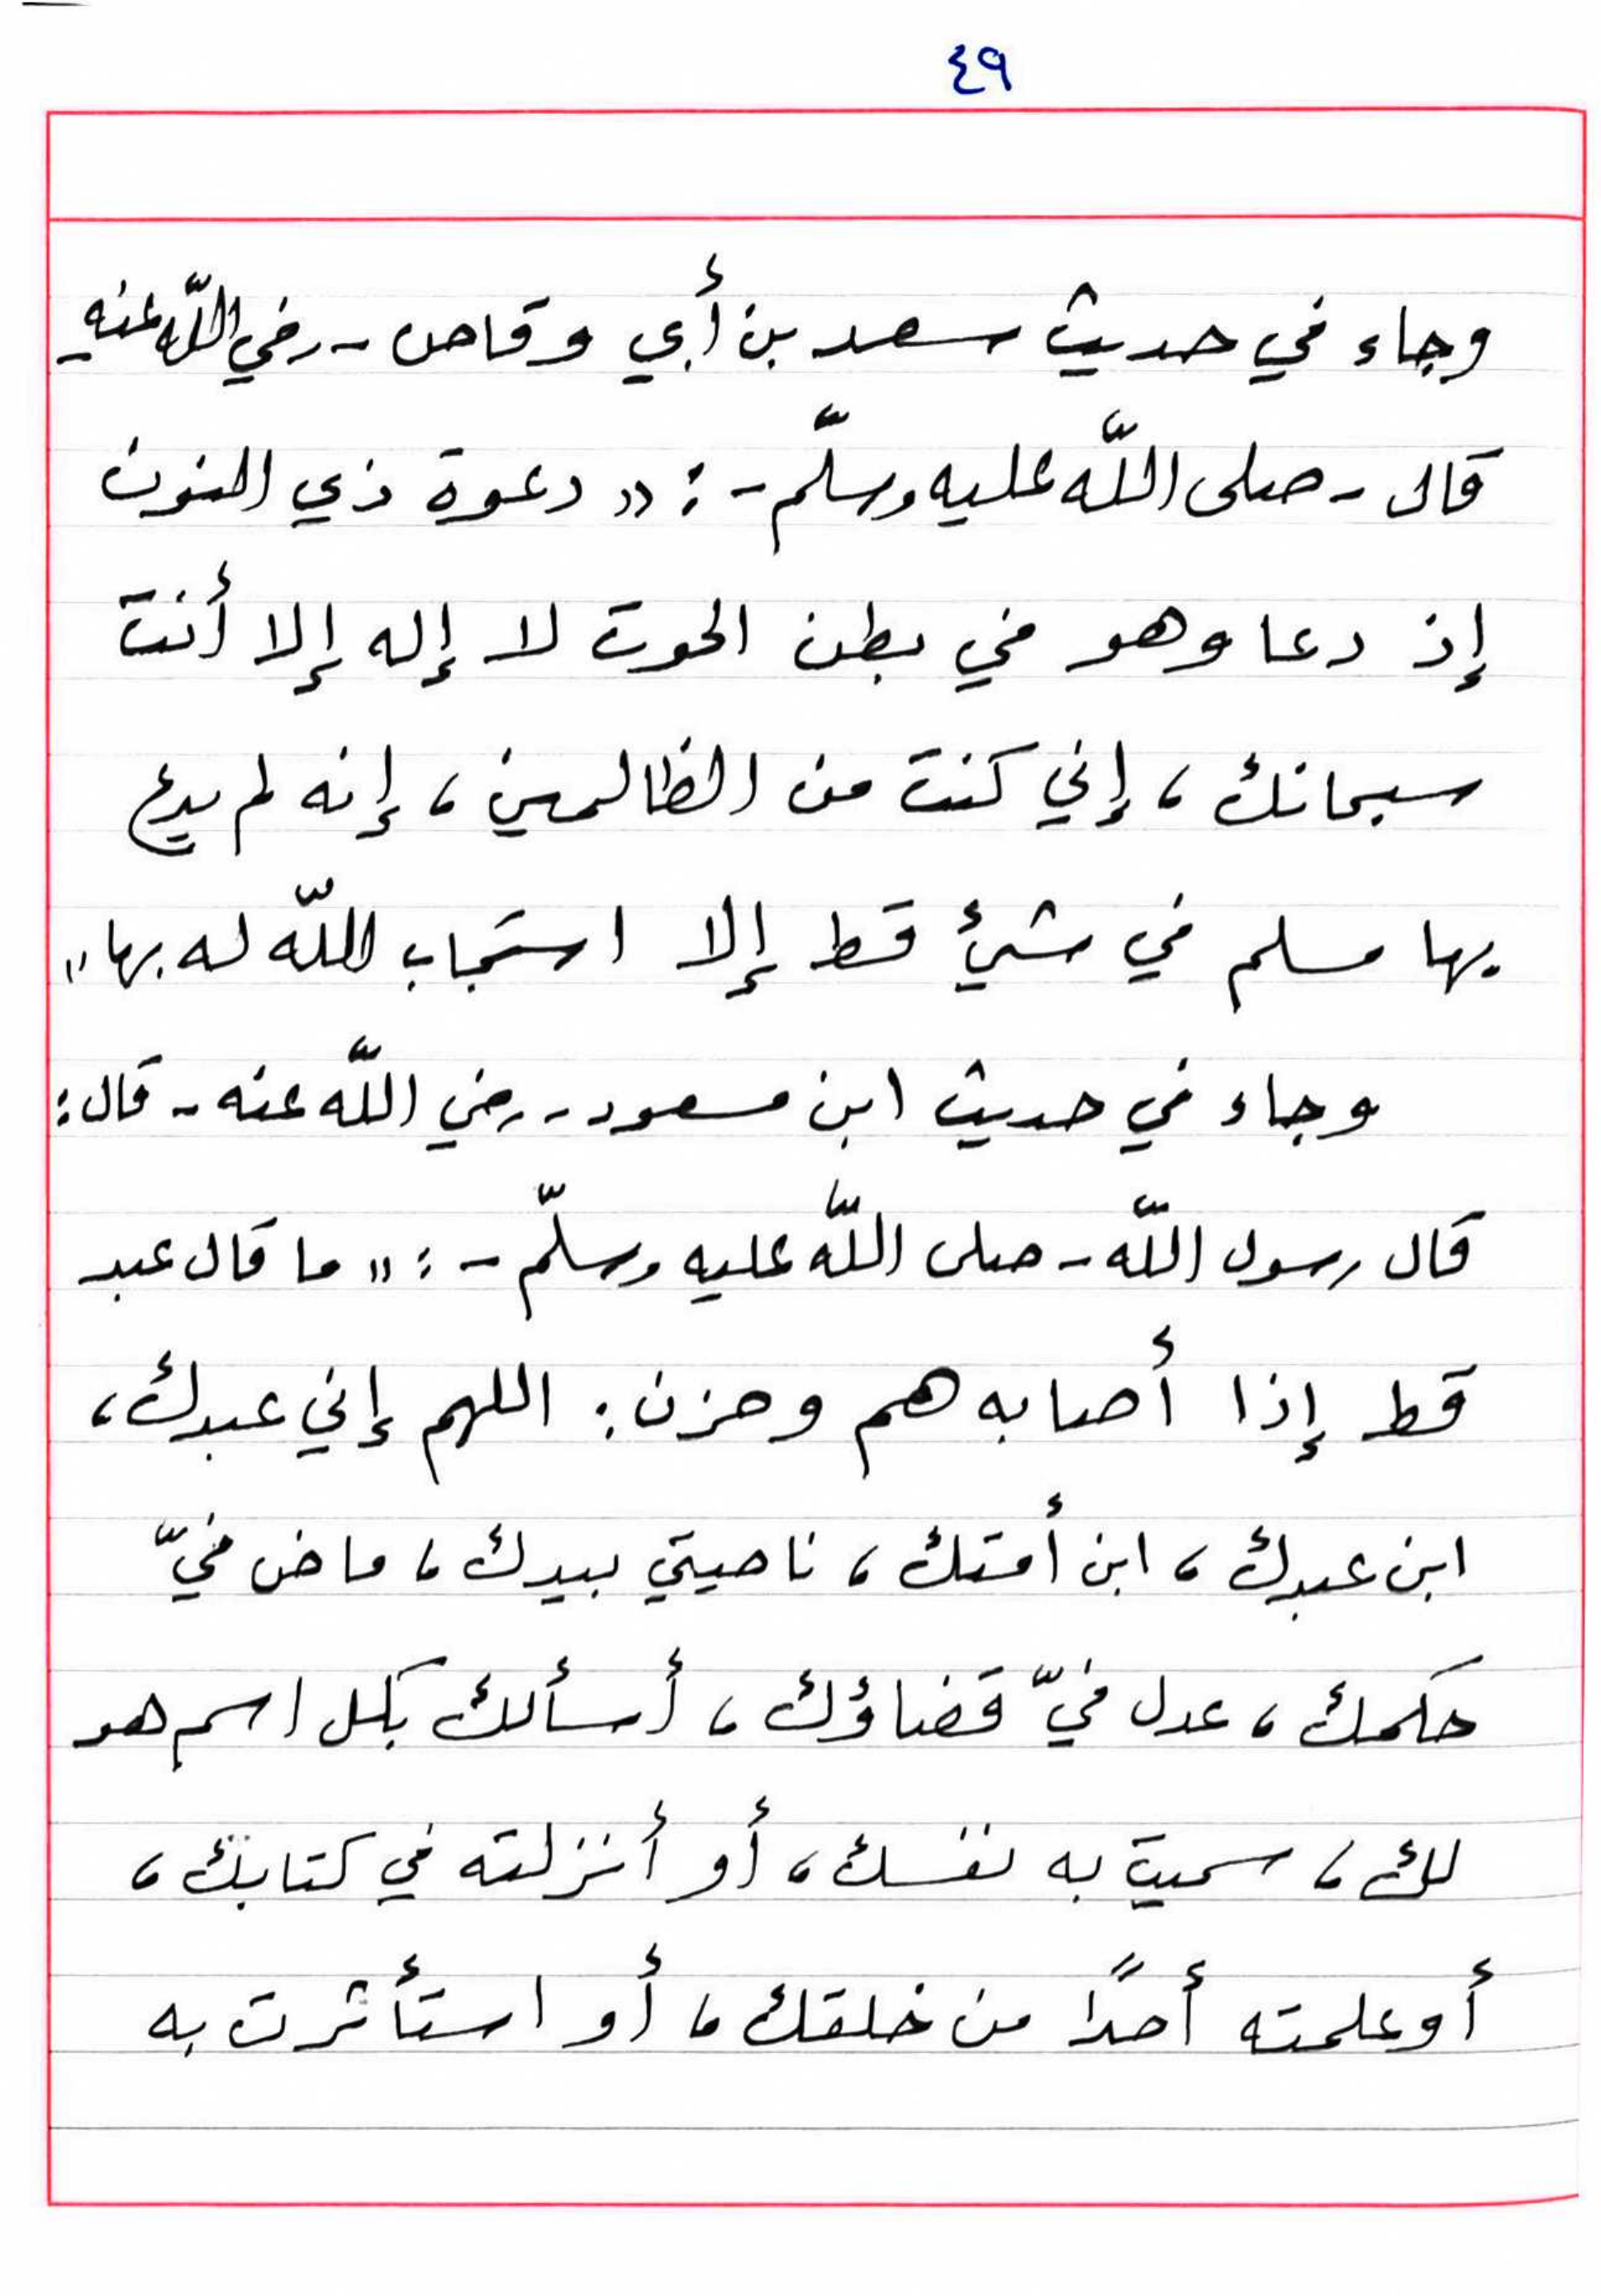 ٤٩
وجاء في حديث سعد بن أبي وقاص - رضي اللّه عنه -
قال - صلى اللّه عليه وسلّم - : « دعوة ذي النون
إذ دعا وهو في بطن الحوت لا إله إلا أنت
سبحانك ، إني كنت من الظالمين ، إنه لم يدع
بها مسلم في شيئ قط إلا استجاب اللّه له بها "
وجاء في حديث ابن مسعود - رضي اللّه عنه - قال :
قال رسول اللّه - صلى اللّه عليه وسلّم - : " ما قال عبد
قط إذا أصابه هم وحزن : اللهم إني عبدك ،
ابن عبدك ، ابن أمتك ، ناصيتي بيدك ، ماض فيّ
حكمك ، عدل فيّ قضاؤك ، أسألك بكل اسم هو
لك ، سميت به نفسك ، أو أنزلته في كتابك ،
أو علمته أحدًا من خلقك ، أو استأثرت به